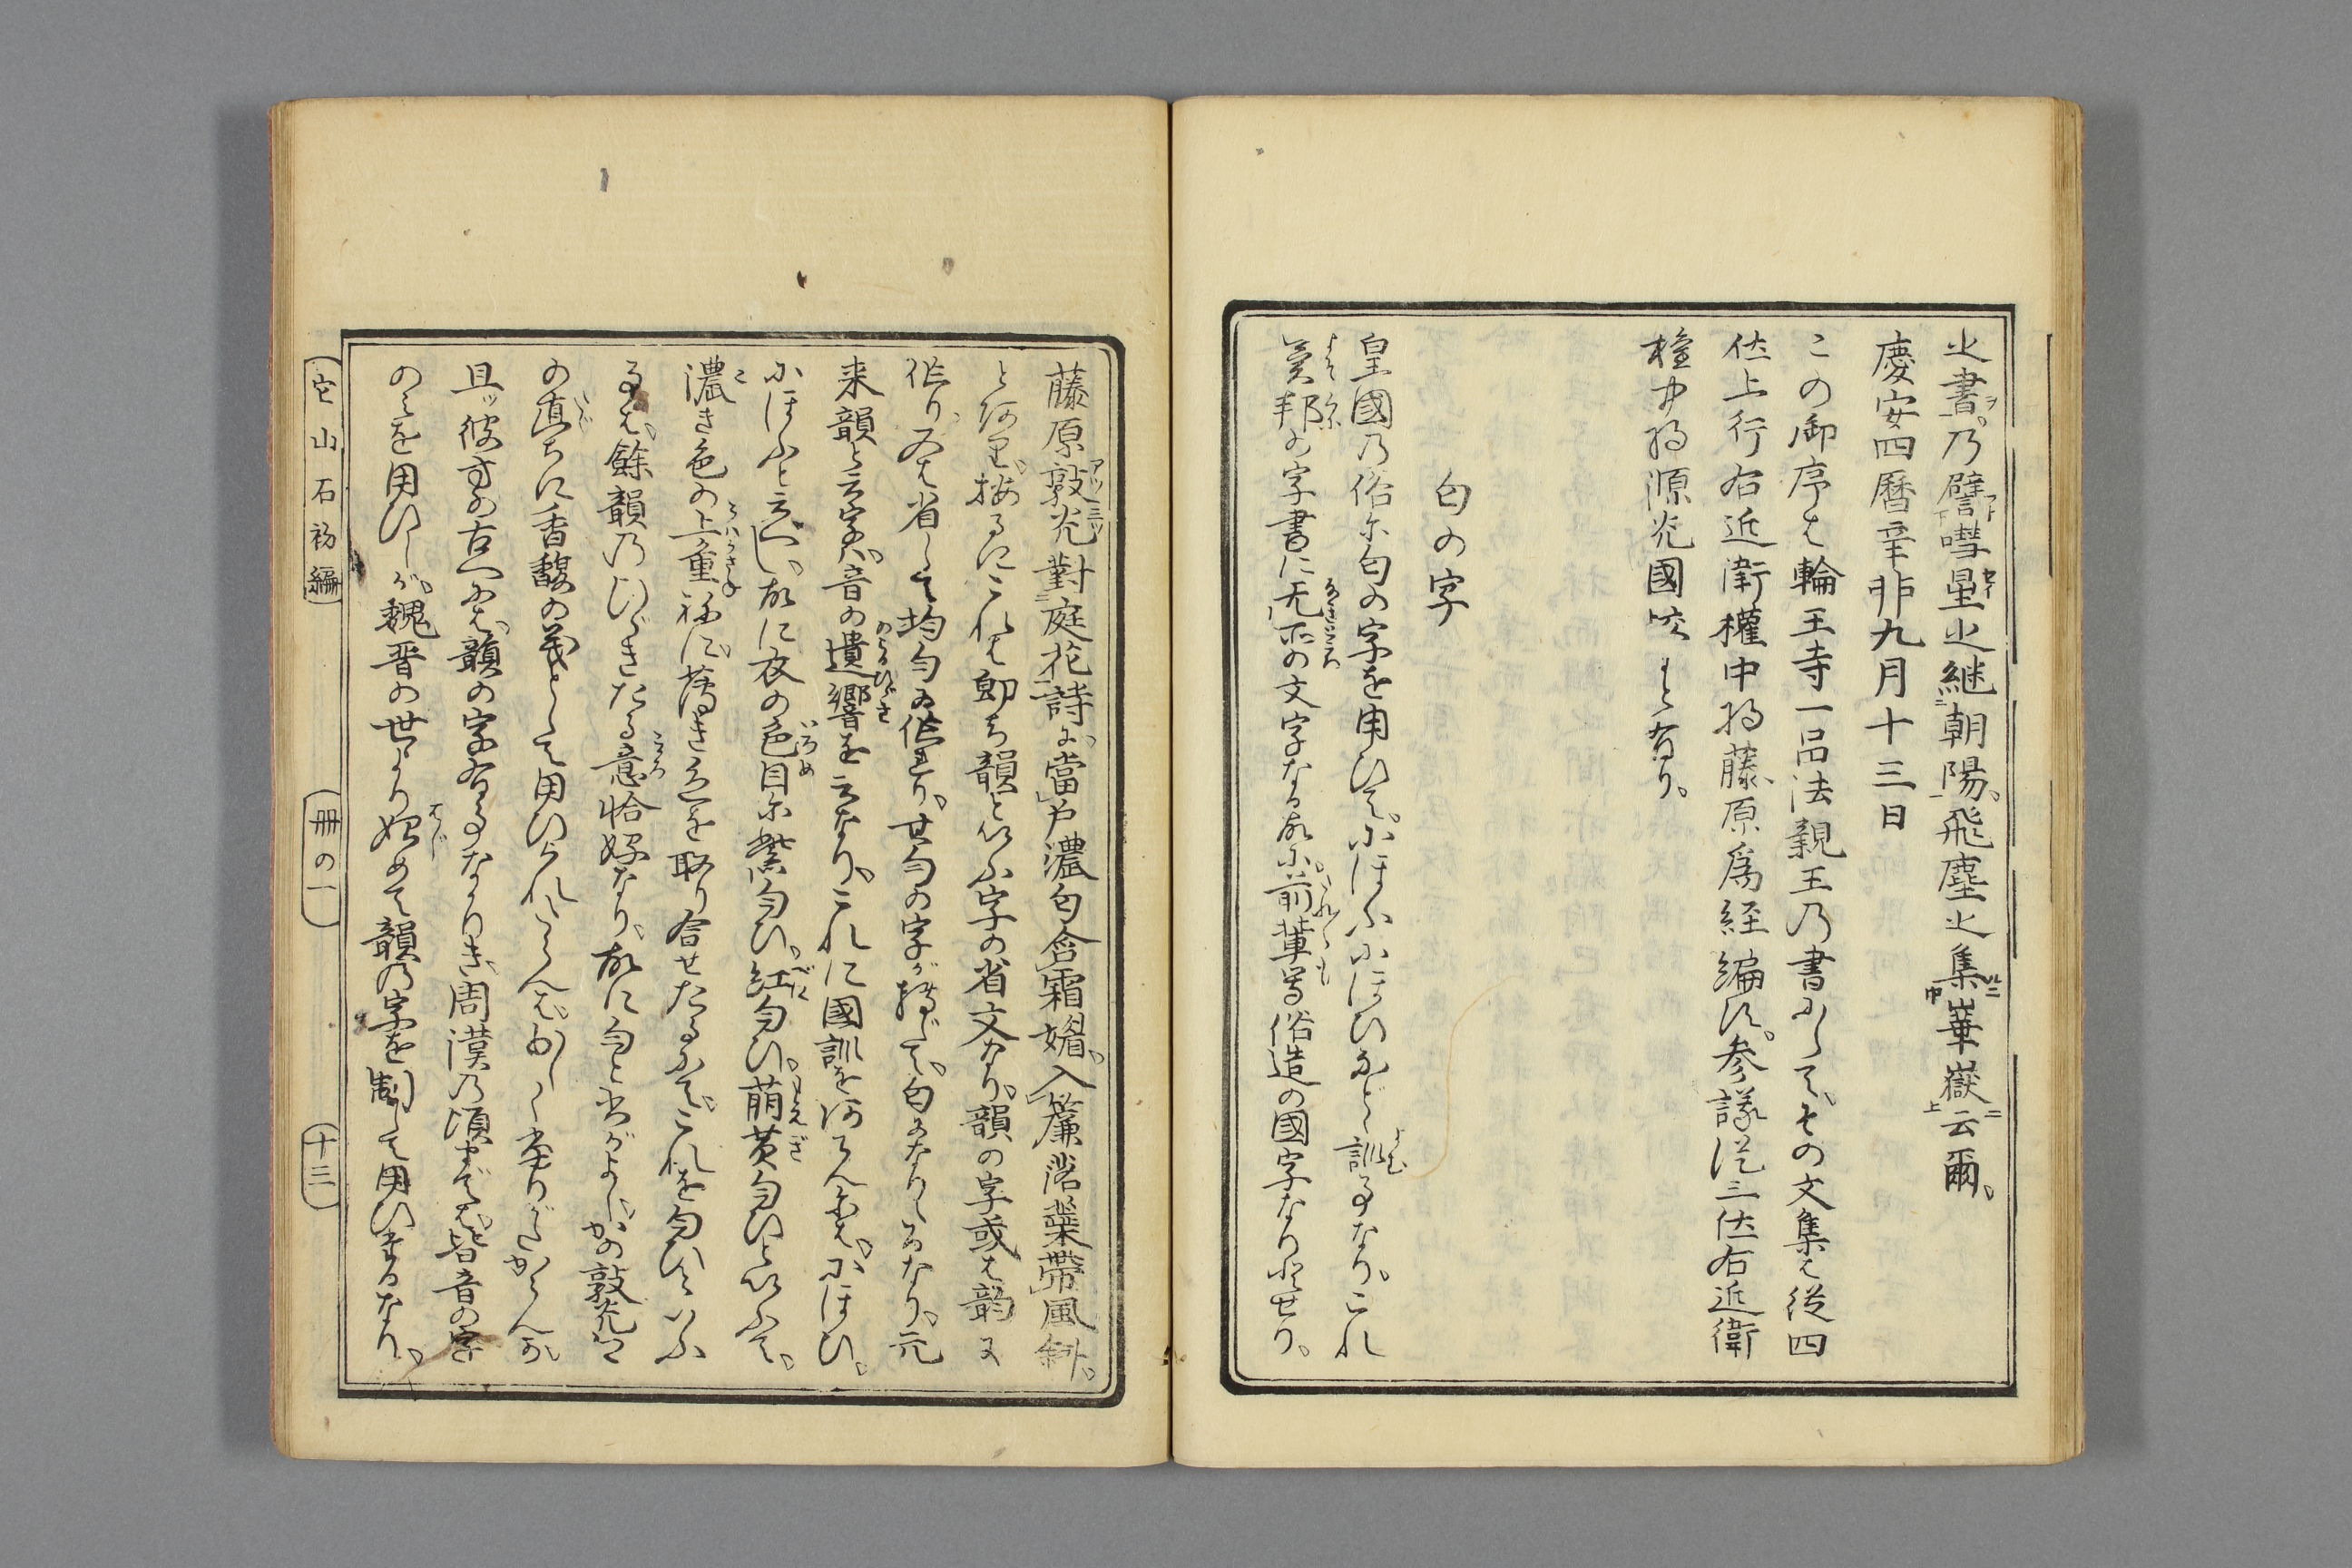 之書。乃譬嘒星之継朝陽。飛塵之集崋嶽云爾。
慶安四暦辛卯九月十三日
この御序は輪王寺一品法親王乃書かして、その文集は従四
位上行右近衛権中将藤原為経編次。参議従三位右近衛
権中将源光國校もと有り。
匂の字
皇國乃俗尓匂の字を用ひて。尓ほふ尓ほひなどゝ訓る事なり。これ
異邦の字書に无所の文字なる故尓。前輩等俗造の國字なりと世り。
藤原敦光對庭花詩に。當戸濃匂含霜媚。入簾落蘂帶風斜。
とあり。按るにこれは即ち韻といふ字の省文なり。韻の字或は韵に
作り。又は省して均勻に作れり。其勻の字が轉じて。匂になりしなり。元
来韻と云字ハ。音の遺響を云なり。これに國訓をあてんには。尓ほひ。
尓ほふと云べし。故に衣の色目尓紫匂ひ。紅匂ひ。萌黄匂ひといふて。
濃き色の上重ねに。薄き色を取り合せたる尓て。これを匂ひといふ
るは。餘韻乃ひゞきたる意恰好なり。故に匂と書がよし。かの敦光は
の直ちに香馥の義として用ひられたらんは。おしく当りがたからんか。
且ッ彼方の古へには。韻の字有る事なかりき。周漢乃頃までは。皆音の字
のみを用ひしが。魏晋の世より始めて韻乃字を制して用ひ来るなり。
宅山石初編
冊の一
十三